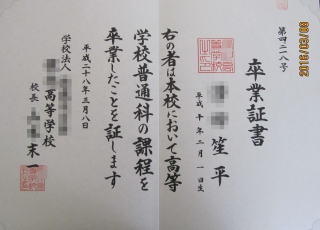 第四二一八号
卒業証書
笙平
平成 十年二月一日生
右の者は本校において高等
学校普通科の課程を
卒業したことを証します
平成二十八年三月八日
学校法人
高等学校
校長 末一
2016/03/09